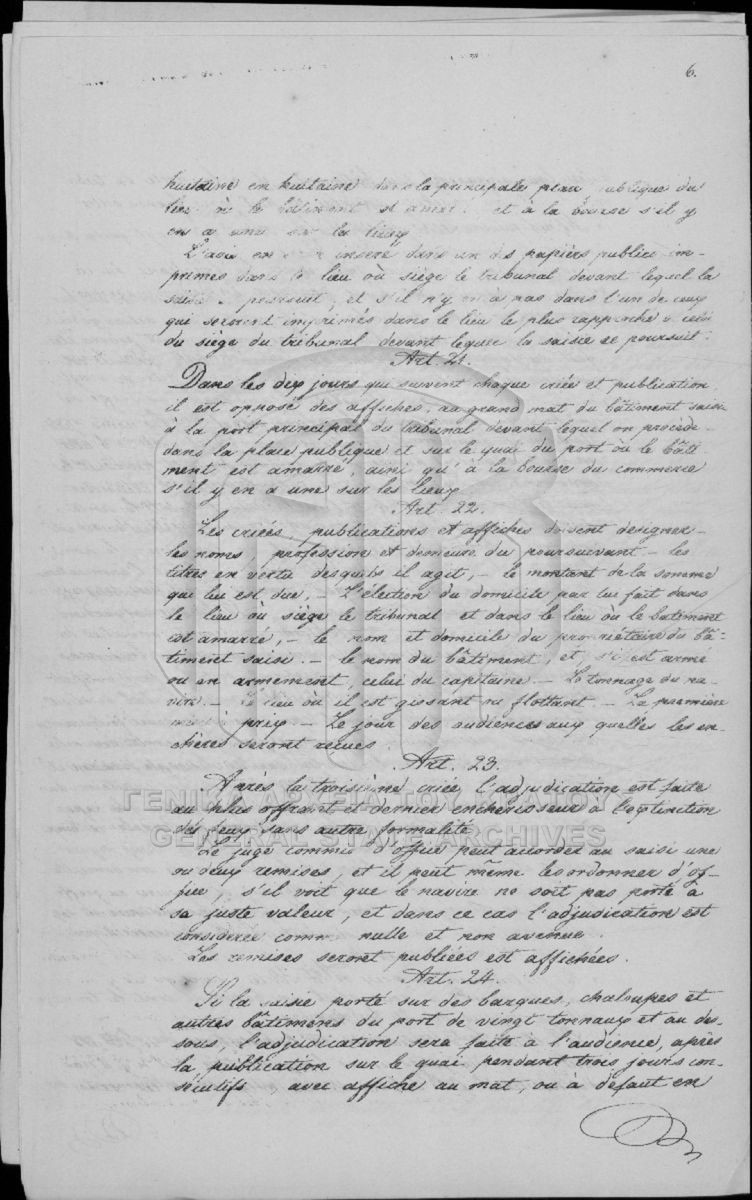 6.
huitaine en huitaine dans la principale place publique du
lieu où le bâtiment et à la bourse s'il y
en a une sur les lieux
L'avis en inséré dans un des papiers publics im-
primés dans le lieu où siège le tribunal devant lequel la
saisie se poursuit, et s'il n'y en a pas dans l'un de ceux
qui seront imprimés dans le lieu le plus rapproché à celui
du siège du tribunal devant lequel la saisie se poursuit.
Art. 21.
Dans les dix jours qui suivent chaque criée et publication
il est opposé des affiches, au grand mat du bâtiment saisi
à la port principal du tribunal devant lequel on procède
dans la place publique et sur le quai du port où le bâti-
ment est amarré, ainsi qu'à la bourse du commerce
s'il y en a une sur les lieux
Art. 22.
Les criées, publications et affiches doivent designer
les noms, profession et demeure du poursuivant – les
titres en vertu desquels il agit, – le montant de la somme
qui lui est due, – L'élection du domicile par lui fait dans
le lieu où siège le tribunal et dans le lieu où le batiment
est amarré, – le nom et domicile du propriétaire du bâ-
timent saisi. – le nom du bâtiment, et s'il est armé
ou en armement, celui du capitaine. – Le tonnage du na-
vire. – Le lieu où il est gissant ou flottant. – La première
mise à prix. – Le jour des audiences aux quelles les en-
chères seront reçues.
Art. 23.
Après la troisième criée l'adjudication est faite
au plus offrant et dernier enchérisseur à l'extinction
des feux sans autre formalité.
Le juge commis d'office peut accorder au saisi une
ou deux remises, et il peut même les ordonner d'of-
fice, s'il voit que le navire ne soit pas porté à
sa juste valeur, et dans ce cas l'adjudication est
considérée comme nulle et non avenue.
Les remises seront publiées est affichées.
Art. 24.
Si la saisie porté sur des barques, chaloupes et
autres bâtimens du port de vingt tonnaux et au des-
sous, l'adjudication sera faite à l'audience, après
la publication sur le quai pendant trois jours con-
sécutifs, avec affiche au mat, ou à défaut en
ΓΕΝΙΚΑ ΑΡΧΕΙΑ ΤΟΥ ΚΡΑΤΟΥΣ
GENERAL STATE ARCHIVES